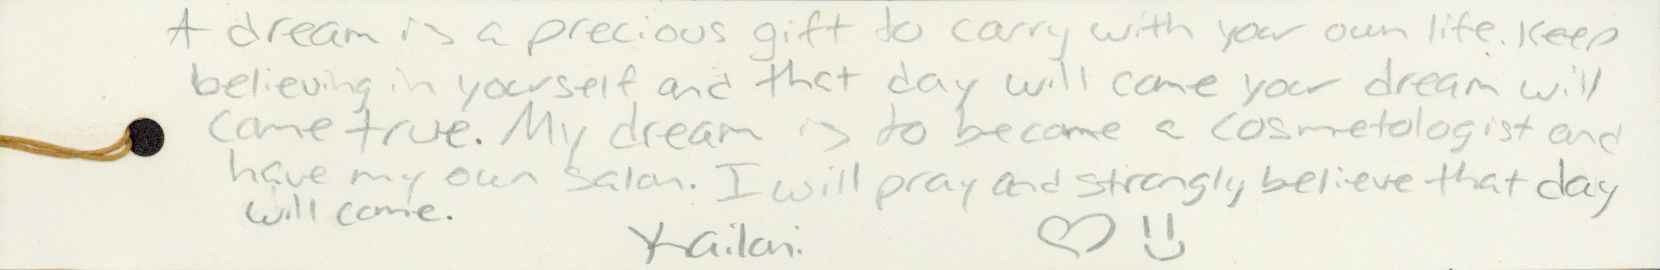 A dream is a precious gift to carry with your own life. Keep
believing in yourself and that day will come your dream will
come true. My dream is to become a cosmetologist and
have my own salon. I will pray and strongly believe that day
will come.
Kailani